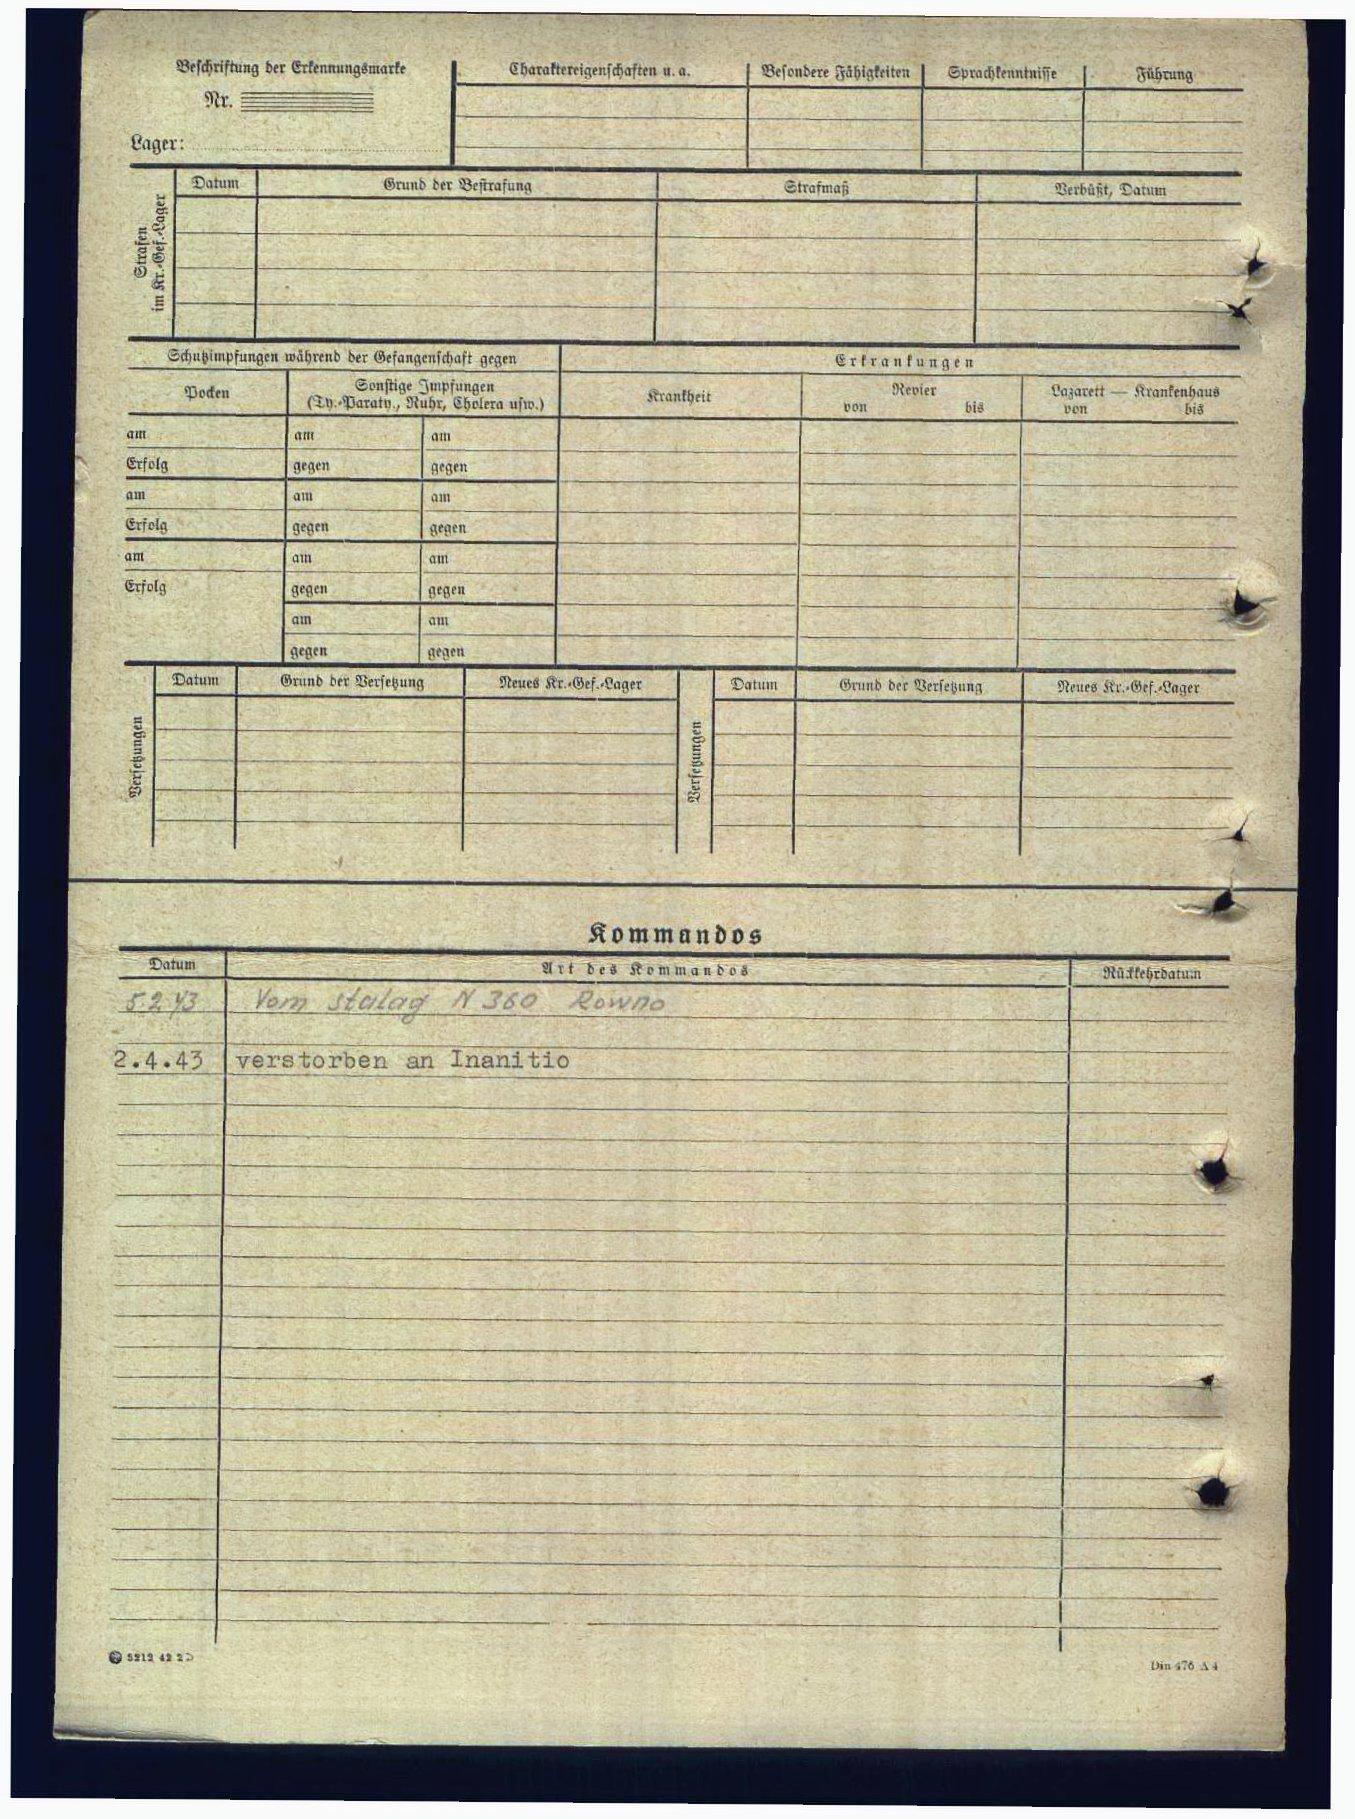 Beschriftung der Erkennungsmarke
Nr.
Lager:
Charaktereigenschaften u. a.
Besondere Fähigkeiten
Sprachkenntnisse
Führung
Strafen
im Kr.-Gef.-Lager
Datum
Grund der Bestrafung
Strafmaß
Verbüßt, Datum
Schutzimpfungen während der Gefangenschaft gegen
Erkrankungen
Pocken
Sonstige Impfungen
(Ty.-Paraty., Ruhr, Cholera usw.)
Krankheit
Revier
von bis
Lazarett — Krankenhaus
von bis
am am am
Erfolg gegen gegen
am am am
Erfolg gegen gegen
am am am
Erfolg gegen gegen
am am
gegen gegen
Versetzungen
Datum
Grund der Versetzung
Neues Kr.-Gef.-Lager
Versetzungen
Datum
Grund der Versetzung
Neues Kr.-Gef.-Lager
Kommandos
Datum
Art des Kommandos
Rückkehrdatum
5.2.43 Vom stalag N 360 Rowno
2.4.43 verstorben an Inanitio
Din 476 A 4